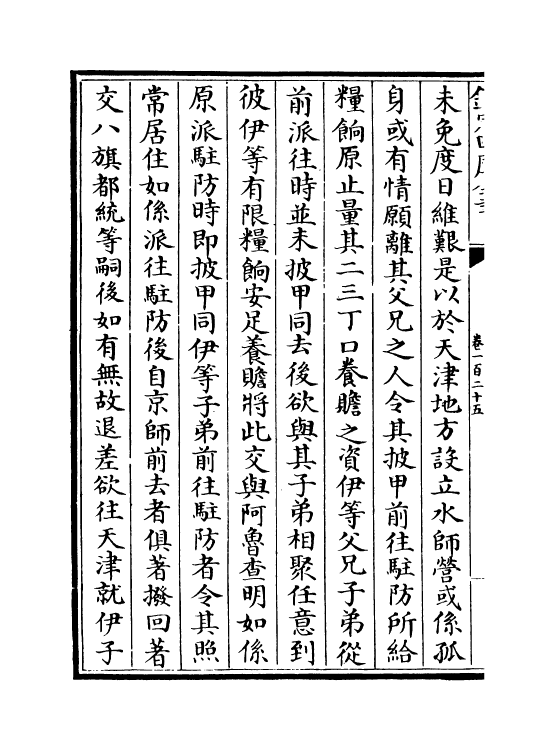 卷一百二十五
未免度日維艱是以於天津地方設立水師營或係孤
身或有情願離其父兄之人令其披甲前往駐防所給
糧餉原止量其二三丁口養贍之資伊等父兄子弟從
前派往時並未披甲同去後欲與其子弟相聚任意到
彼伊等有限糧餉安足養贍將此交與阿魯查明如係
原派駐防時即披甲同伊等子弟前往駐防者令其照
常居住如係派往駐防後自京師前去者俱著撥回著
交八旗都統等嗣後如有無故退差欲往天津就伊子